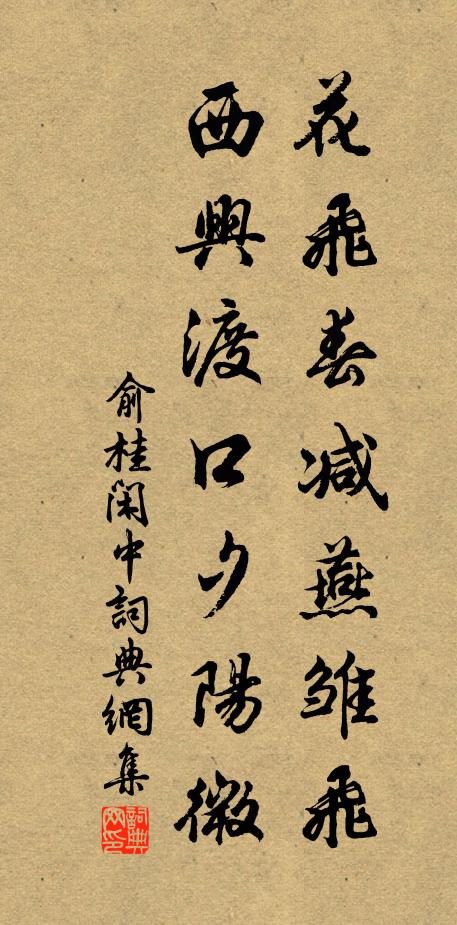 花飛春減燕雏飛
西興渡口夕陽微
俞桂閑中詞典網集
詞典网印